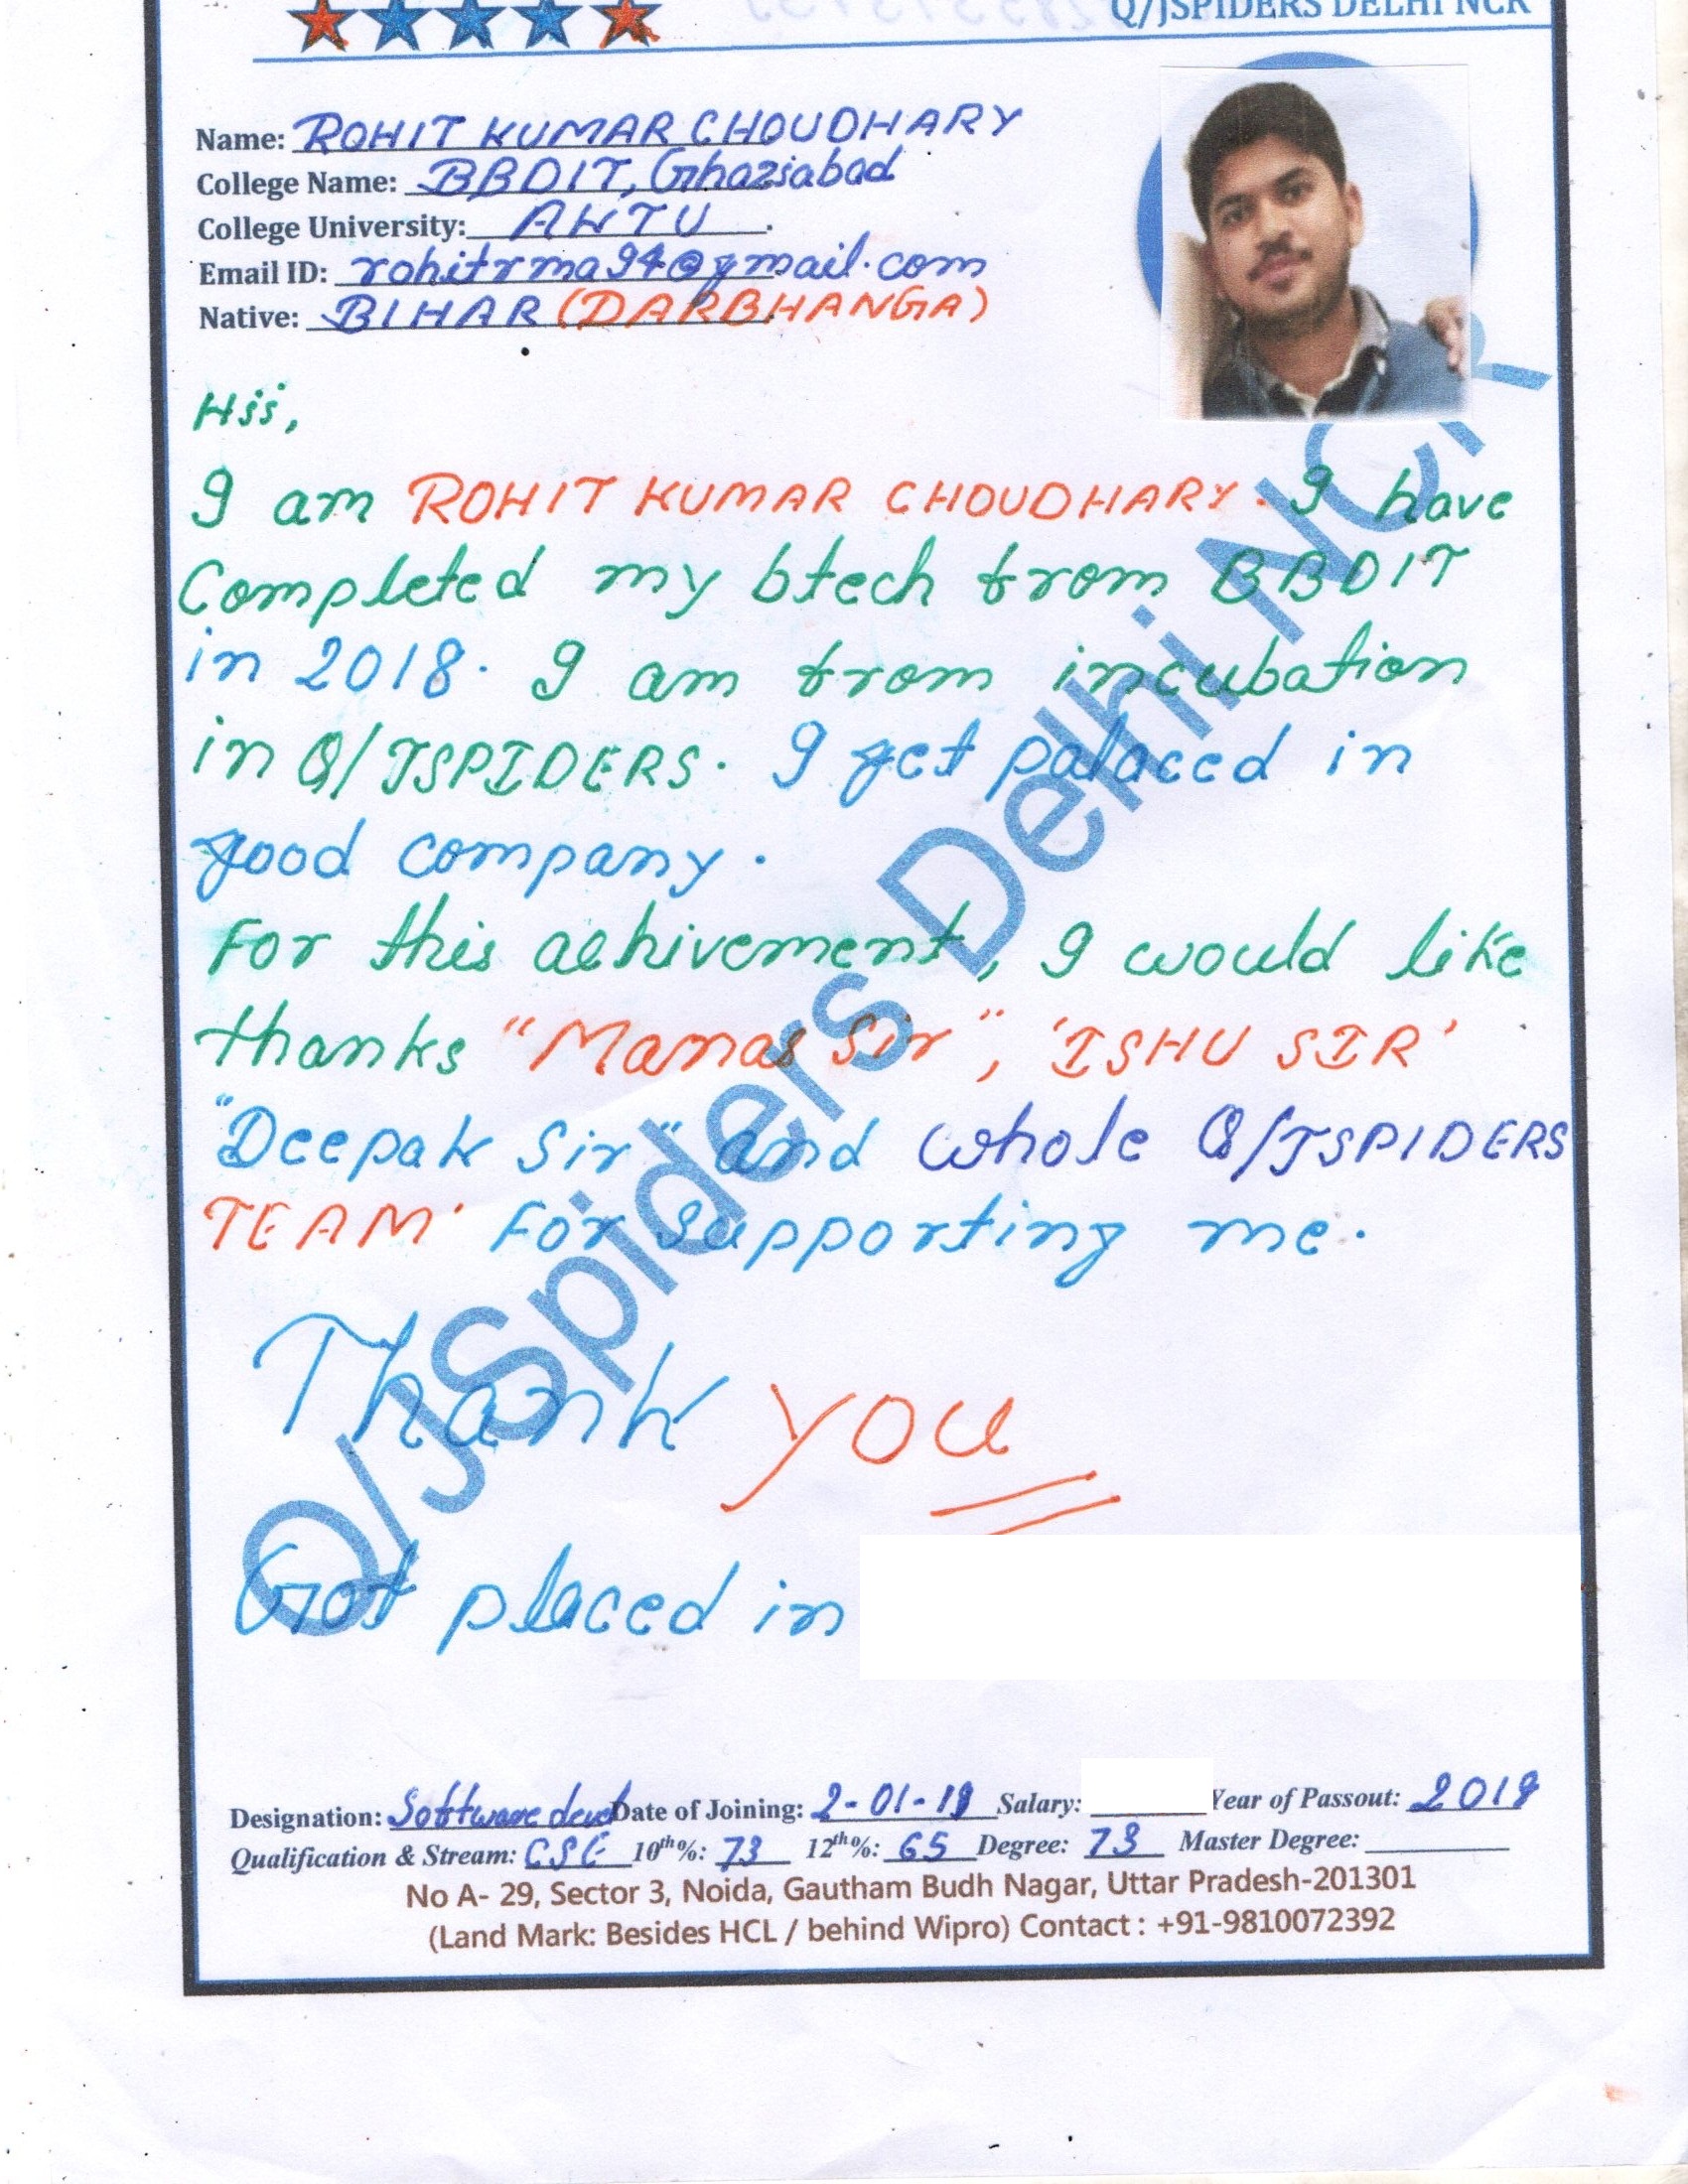 Q/JSPIDERS DELHI NCR
Name: ROHIT KUMAR CHOUDHARY
College Name: BBDIT, Ghaziabad
College University: AKTU
Email ID: rohitrma94@gmail.com
Native: BIHAR (DARBHANGA)
Hii,
I am ROHIT KUMAR CHOUDHARY. I have
Completed my btech from BBDIT
in 2018. I am from incubation
in Q/JSPIDERS. I get palaced in
good company.
For this achivement, I would like
thanks "Manas Sir", 'ISHU SIR'
"Deepak Sir" and whole Q/JSPIDERS
TEAM' For supporting me.
Thank you
Got placed in
Q/JSpiders Delhi NCR
Designation: Software Date of Joining: 2-01-19 Salary: Year of Passout: 2018
Qualification & Stream: CSE 10th%: 73 12th%: 65 Degree: 73 Master Degree:
No A- 29, Sector 3, Noida, Gautham Budh Nagar, Uttar Pradesh-201301
(Land Mark: Besides HCL / behind Wipro) Contact : +91-9810072392